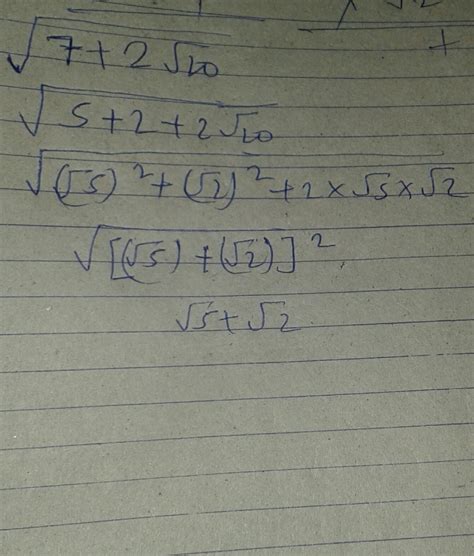 √7+2√20
√5+2+2√20
√(√5)²+(√2)²+2×√5×√2
√[(√5)+(√2)]²
√5+√2